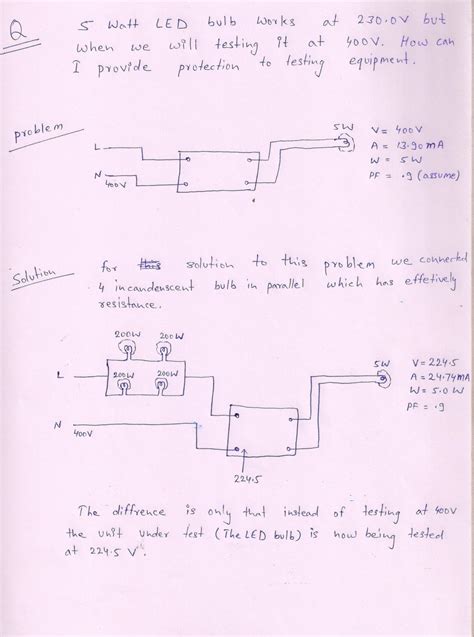 Q
5 Watt LED bulb works at 230.0V but
when we will testing it at 400V. How can
I provide protection to testing equipment.
problem
L
N
400V
5W
V = 400V
A = 13.90mA
W = 5W
PF = .9 (assume)
Solution
for this solution to this problem we connected
4 incandenscent bulb in parallel which has effetively
resistance.
200W 200W
200W 200W
L
N
400V
224.5
5W
V = 224.5
A = 24.74mA
W = 5.0W
PF = .9
The diffrence is only that instead of testing at 400V
the unit under test (The LED bulb) is now being tested
at 224.5 V.